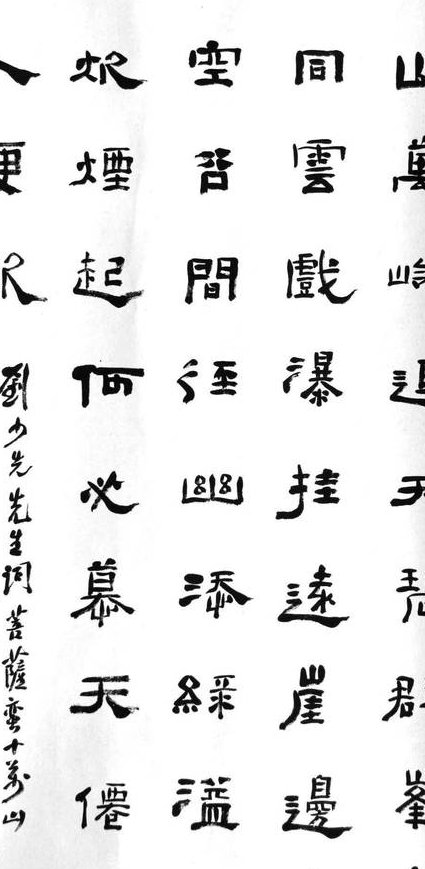 山萬追天群峯
同雲戲瀑挂遠崖邊
空谷間徑幽添綠溢
炊煙起何必慕天僊
人
劉少先先生詞菩薩蠻十萬山